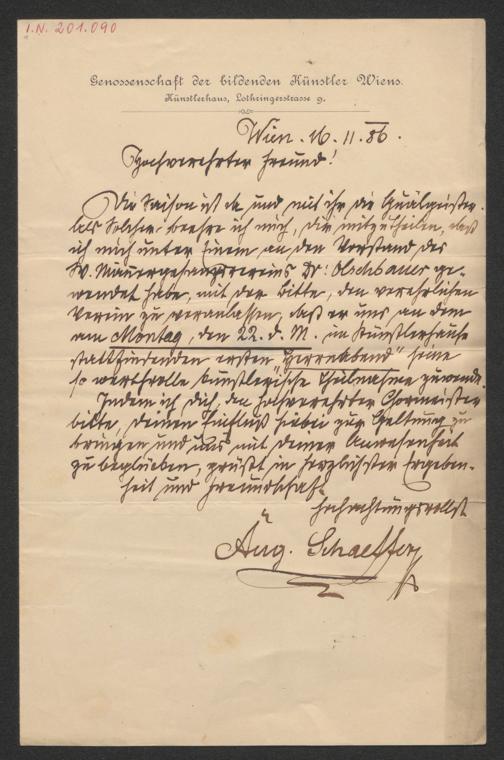 I.N. 201.090
Genossenschaft der bildenden Künstler Wiens.
Künstlerhaus, Lothringerstrasse 9.
Wien. 16. 11. 86.
Hochverehrter Freund!
Die Saison ist da und mit ihr die Quälgeister.
Als Solcher beehre ich mich, dir mitzutheilen, daß
ich mich unter Einem an den Vorstand des
W. Männergesangvereins Dr: Olschbauer ge-
wendet habe, mit der Bitte, den verehrlichen
Verein zu veranlassen, daß er uns an dem
am Montag, den 22. d. M. im Künstlerhause
stattfindenden ersten "Herrenabend" seine
so werthvolle künstlerische Theilnahme zuwende.
Indem ich Dich, den hochverehrten Chormeister
bitte, deinen Einfluß hiebei zur Geltung zu
bringen und uns mit deiner Anwesenheit
zu beglücken, grüßt in herzlichster Ergeben-
heit und Freundschaft
Hochachtungsvollst
Aug. Schaeffer